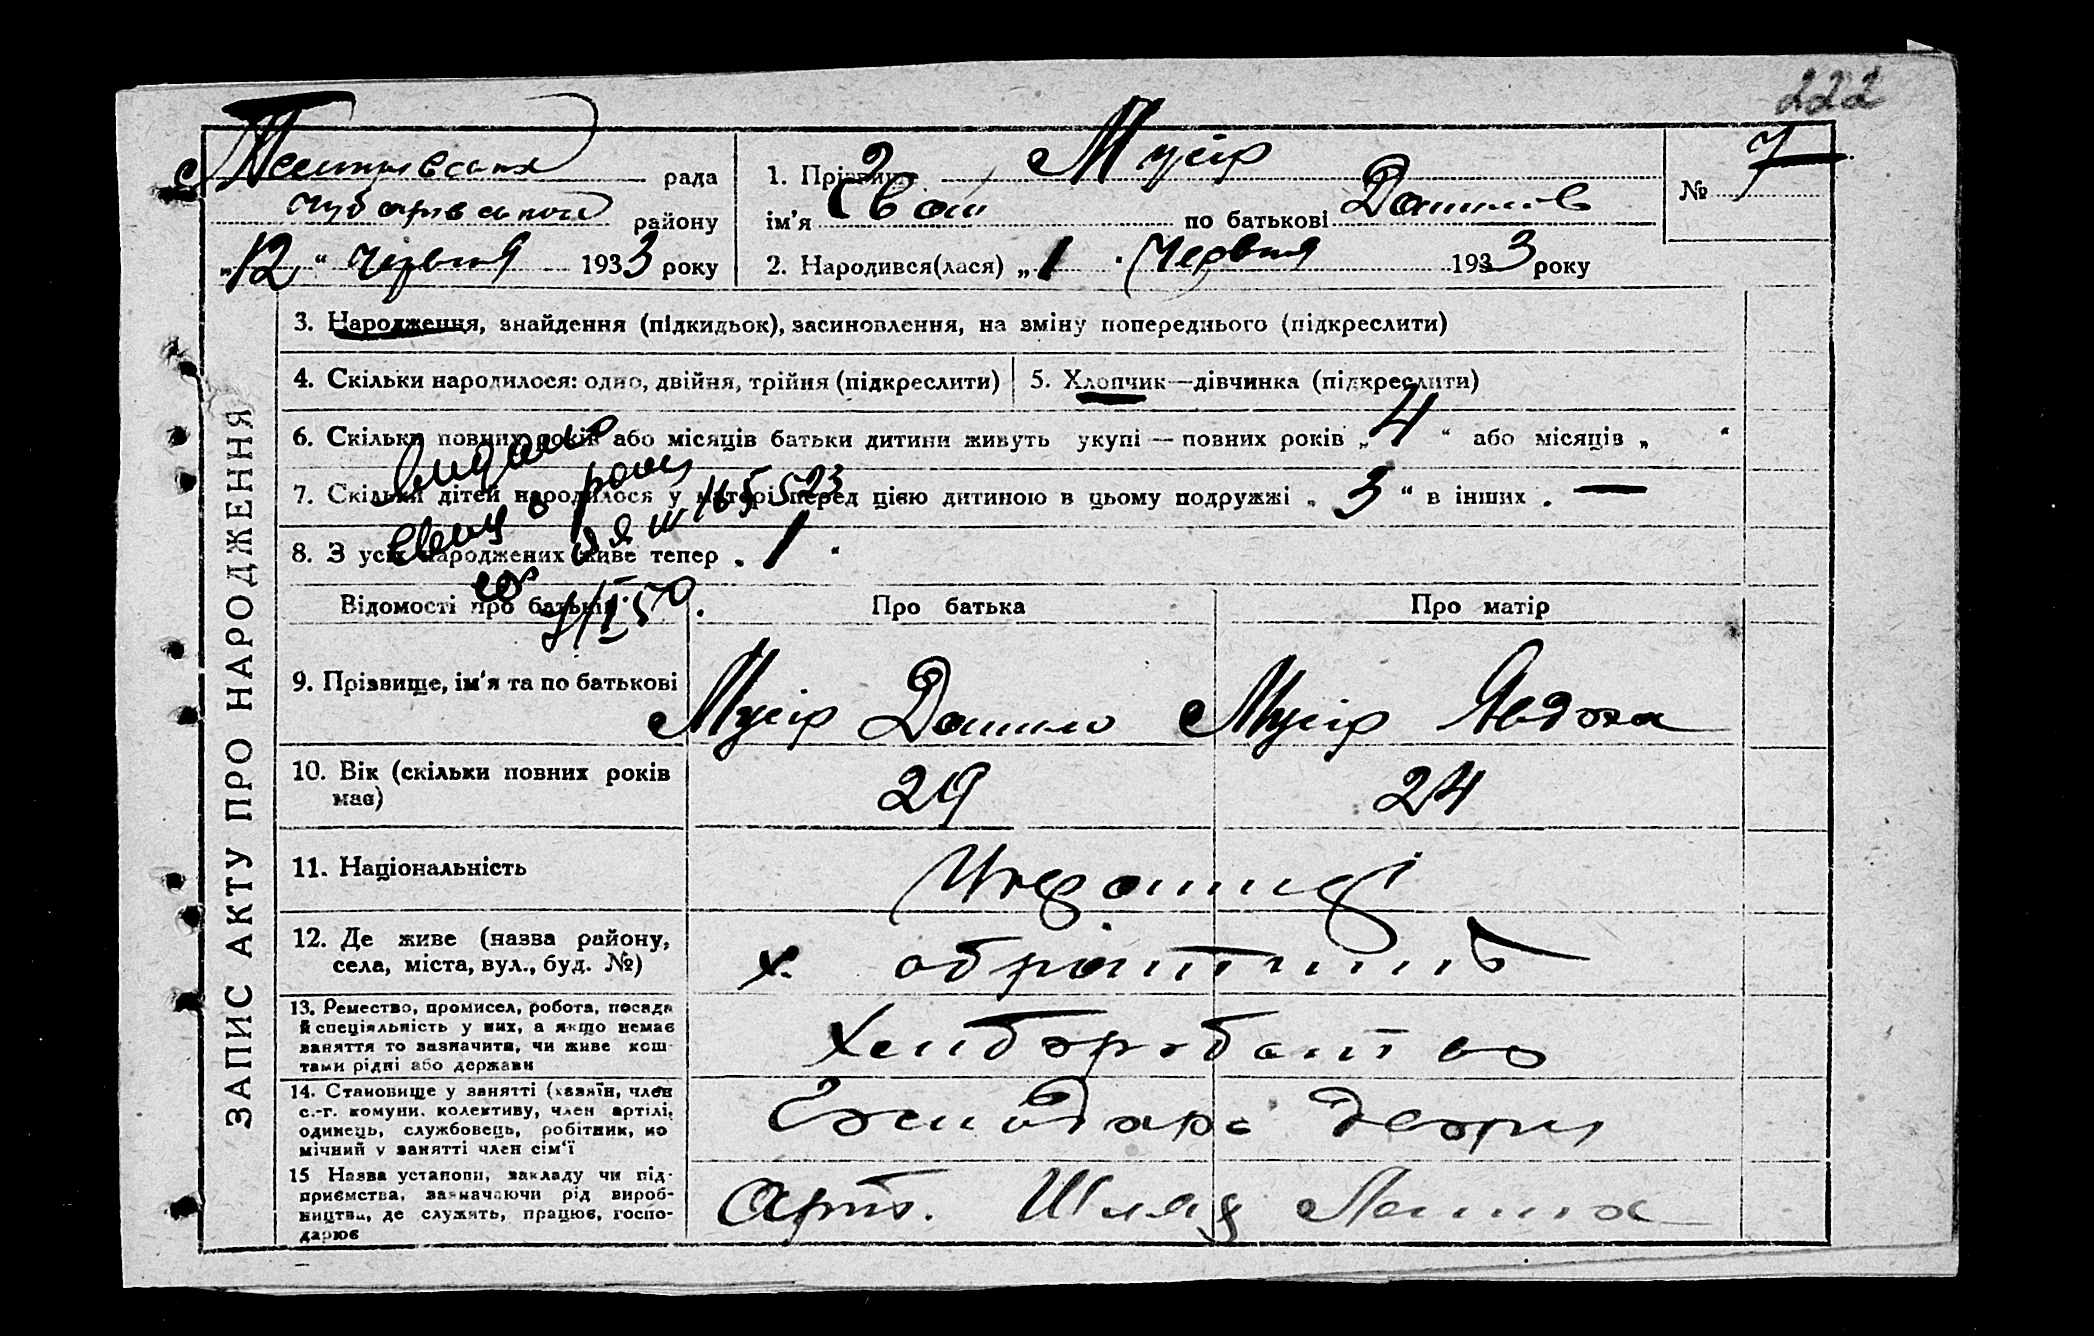 222
рада
району
„12“ червня 1933 року
1. Прізвище Мусір
ім'я Іван по батькові Данилов
2. Народився(лася) „1 Червня 1933 року
№ 7
ЗАПИС АКТУ ПРО НАРОДЖЕННЯ
3. Народження, знайдення (підкидьок), засиновлення, на зміну попереднього (підкреслити)
4. Скільки народилося: одно, двійня, трійня (підкреслити)
5. Хлопчик—дівчинка (підкреслити)
6. Скільки повних років або місяців батьки дитини живуть укупі — повних років „4“ або місяців „ “
7. Скільки дітей народилося у матері перед цією дитиною в цьому подружжі „3“ в інших „ —
8. З усіх народжених живе тепер „1“
Відомості про батьків
Про батька
Про матір
9. Прізвище, ім'я та по батькові
Мусір Данило
Мусір Явдоха
10. Вік (скільки повних років
має)
29
24
11. Національність
Українці
12. Де живе (назва району,
села, міста, вул., буд. №)
х.
13. Ремество, промисел, робота, посада
й спеціяльність у них, а якщо немає
заняття то зазначити, чи живе кош-
тами рідні або держави
Хліборобство
14. Становище у занятті (хазяїн, член
с.-г. комуни, колективу, член артілі,
одинець, службовець, робітник, по
мічний у занятті член сім'ї
15 Назва установи, закладу чи під-
приємства, зазначаючи рід вироб-
ництва, де служить, працює, госпо-
дарює
Арт. Шлях Леніна